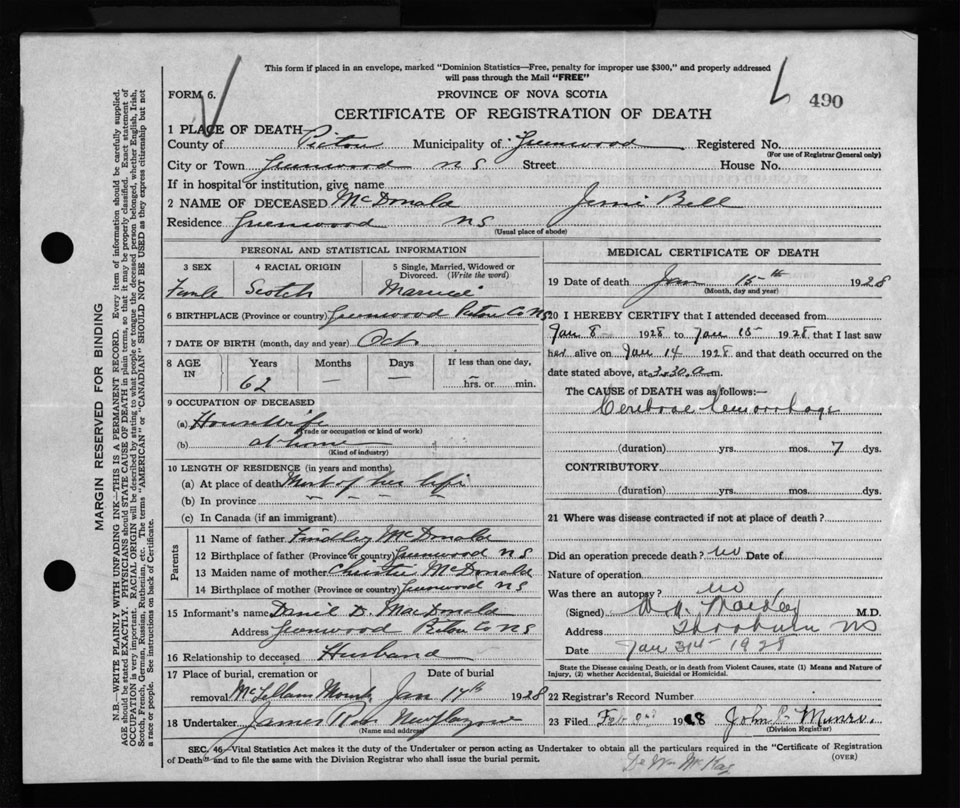 This form if placed in an envelope, marked "Dominion Statistics—Free, penalty for improper use $300," and properly addressed
will pass through the Mail "FREE"
FORM 6.
PROVINCE OF NOVA SCOTIA
490
CERTIFICATE OF REGISTRATION OF DEATH
1 PLACE OF DEATH—
County of Pictou Municipality of Greenwood Registered No.
(For use of Registrar General only)
City or Town Greenwood N S Street House No.
If in hospital or institution, give name
2 NAME OF DECEASED McDonald Jessie Bell
Residence Greenwood NS
(Usual place of abode)
PERSONAL AND STATISTICAL INFORMATION
3 SEX 4 RACIAL ORIGIN 5 Single, Married, Widowed or Divorced. (Write the word)
Female Scotch Married
6 BIRTHPLACE (Province or country) Greenwood Pictou Co NS
7 DATE OF BIRTH (month, day and year) Oct
8 AGE IN Years Months Days If less than one day,
62 — — — hrs. or min.
9 OCCUPATION OF DECEASED
(a) Housewife
(Trade or occupation or kind of work)
(b) at home
(Kind of industry)
10 LENGTH OF RESIDENCE (in years and months)
(a) At place of death Most of her life
(b) In province
(c) In Canada (if an immigrant)
Parents
11 Name of father Findley McDonald
12 Birthplace of father (Province or country) Greenwood NS
13 Maiden name of mother Christie McDonald
14 Birthplace of mother (Province or country) Greenwood NS
15 Informant's name D. MacDonald
Address Greenwood Pictou Co NS
16 Relationship to deceased Husband
17 Place of burial, cremation or removal Date of burial
McLellans Mount Jan 17th 1928
18 Undertaker James New Glasgow
(Name and address)
MEDICAL CERTIFICATE OF DEATH
19 Date of death Jan 15th 1928
(Month, day and year)
20 I HEREBY CERTIFY that I attended deceased from
Jan 8 1928 to Jan 15 1928 that I last saw
her alive on Jan 14 1928 and that death occurred on
date stated above, at 3.30 a m.
The CAUSE of DEATH was as follows:—
Cerebral hemorrhage
(duration) yrs. mos. 7 dys.
CONTRIBUTORY
(duration) yrs. mos. dys.
21 Where was disease contracted if not at place of death?
Did an operation precede death? no Date of
Nature of operation
Was there an autopsy? no
(Signed) MacKay M.D.
Address Thorburn NS
Date Jan 31st 1928
State the Disease causing Death, or in death from Violent Causes, state (1) Means and Nature of
Injury, (2) whether Accidental, Suicidal or Homicidal.
22 Registrar's Record Number
23 Filed Feb 1928 John P. Munro.
(Division Registrar)
SEC. 46—Vital Statistics Act makes it the duty of the Undertaker or person acting as Undertaker to obtain all the particulars required in the "Certificate of Registration
of Death" and to file the same with the Division Registrar who shall issue the burial permit.
(OVER)
MARGIN RESERVED FOR BINDING
N.B.—WRITE PLAINLY WITH UNFADING INK—THIS IS A PERMANENT RECORD. Every item of information should be carefully supplied.
AGE should be stated EXACTLY. PHYSICIANS should STATE CAUSE OF DEATH in plain terms, so that it may be properly classified. Exact statement of
OCCUPATION is very important. RACIAL ORIGIN will be described by stating to what people or tongue the deceased person belonged, whether English, Irish,
Scotch, French, German, Russian, Ruthenian, etc. The terms "AMERICAN" or "CANADIAN" SHOULD NOT BE USED as they express citizenship but not
a race or people. See instructions on back of Certificate.